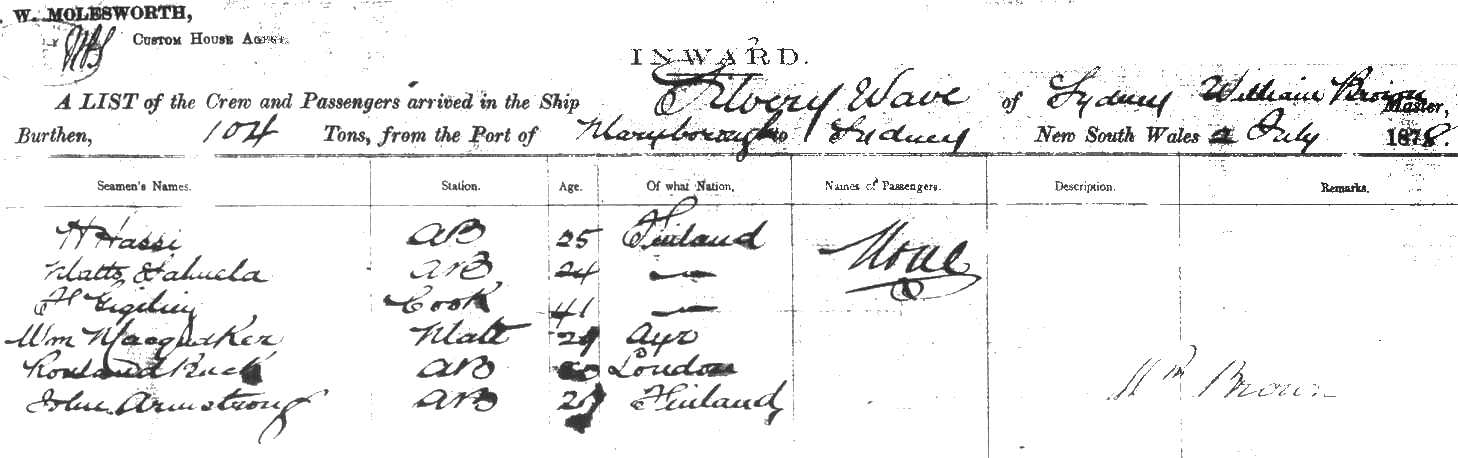 W. MOLESWORTH,
CUSTOM HOUSE AGENT.
INWARD.
A LIST of the Crew and Passengers arrived in the Ship Silvery Wave of Sydney William Brown Master,
Burthen, 104 Tons, from the Port of Maryborough to Sydney New South Wales 2 July 1878.
Seamen's Names. Station. Age. Of what Nation. Names of Passengers. Description. Remarks.
H Hassi AB 25 Finland None
Matts AB 24 —
Cook 41 —
Wm Macquaker Matt 29 Ayr
Rowland Ruck AB London
John Armstrong AB Finland
Wm Brown